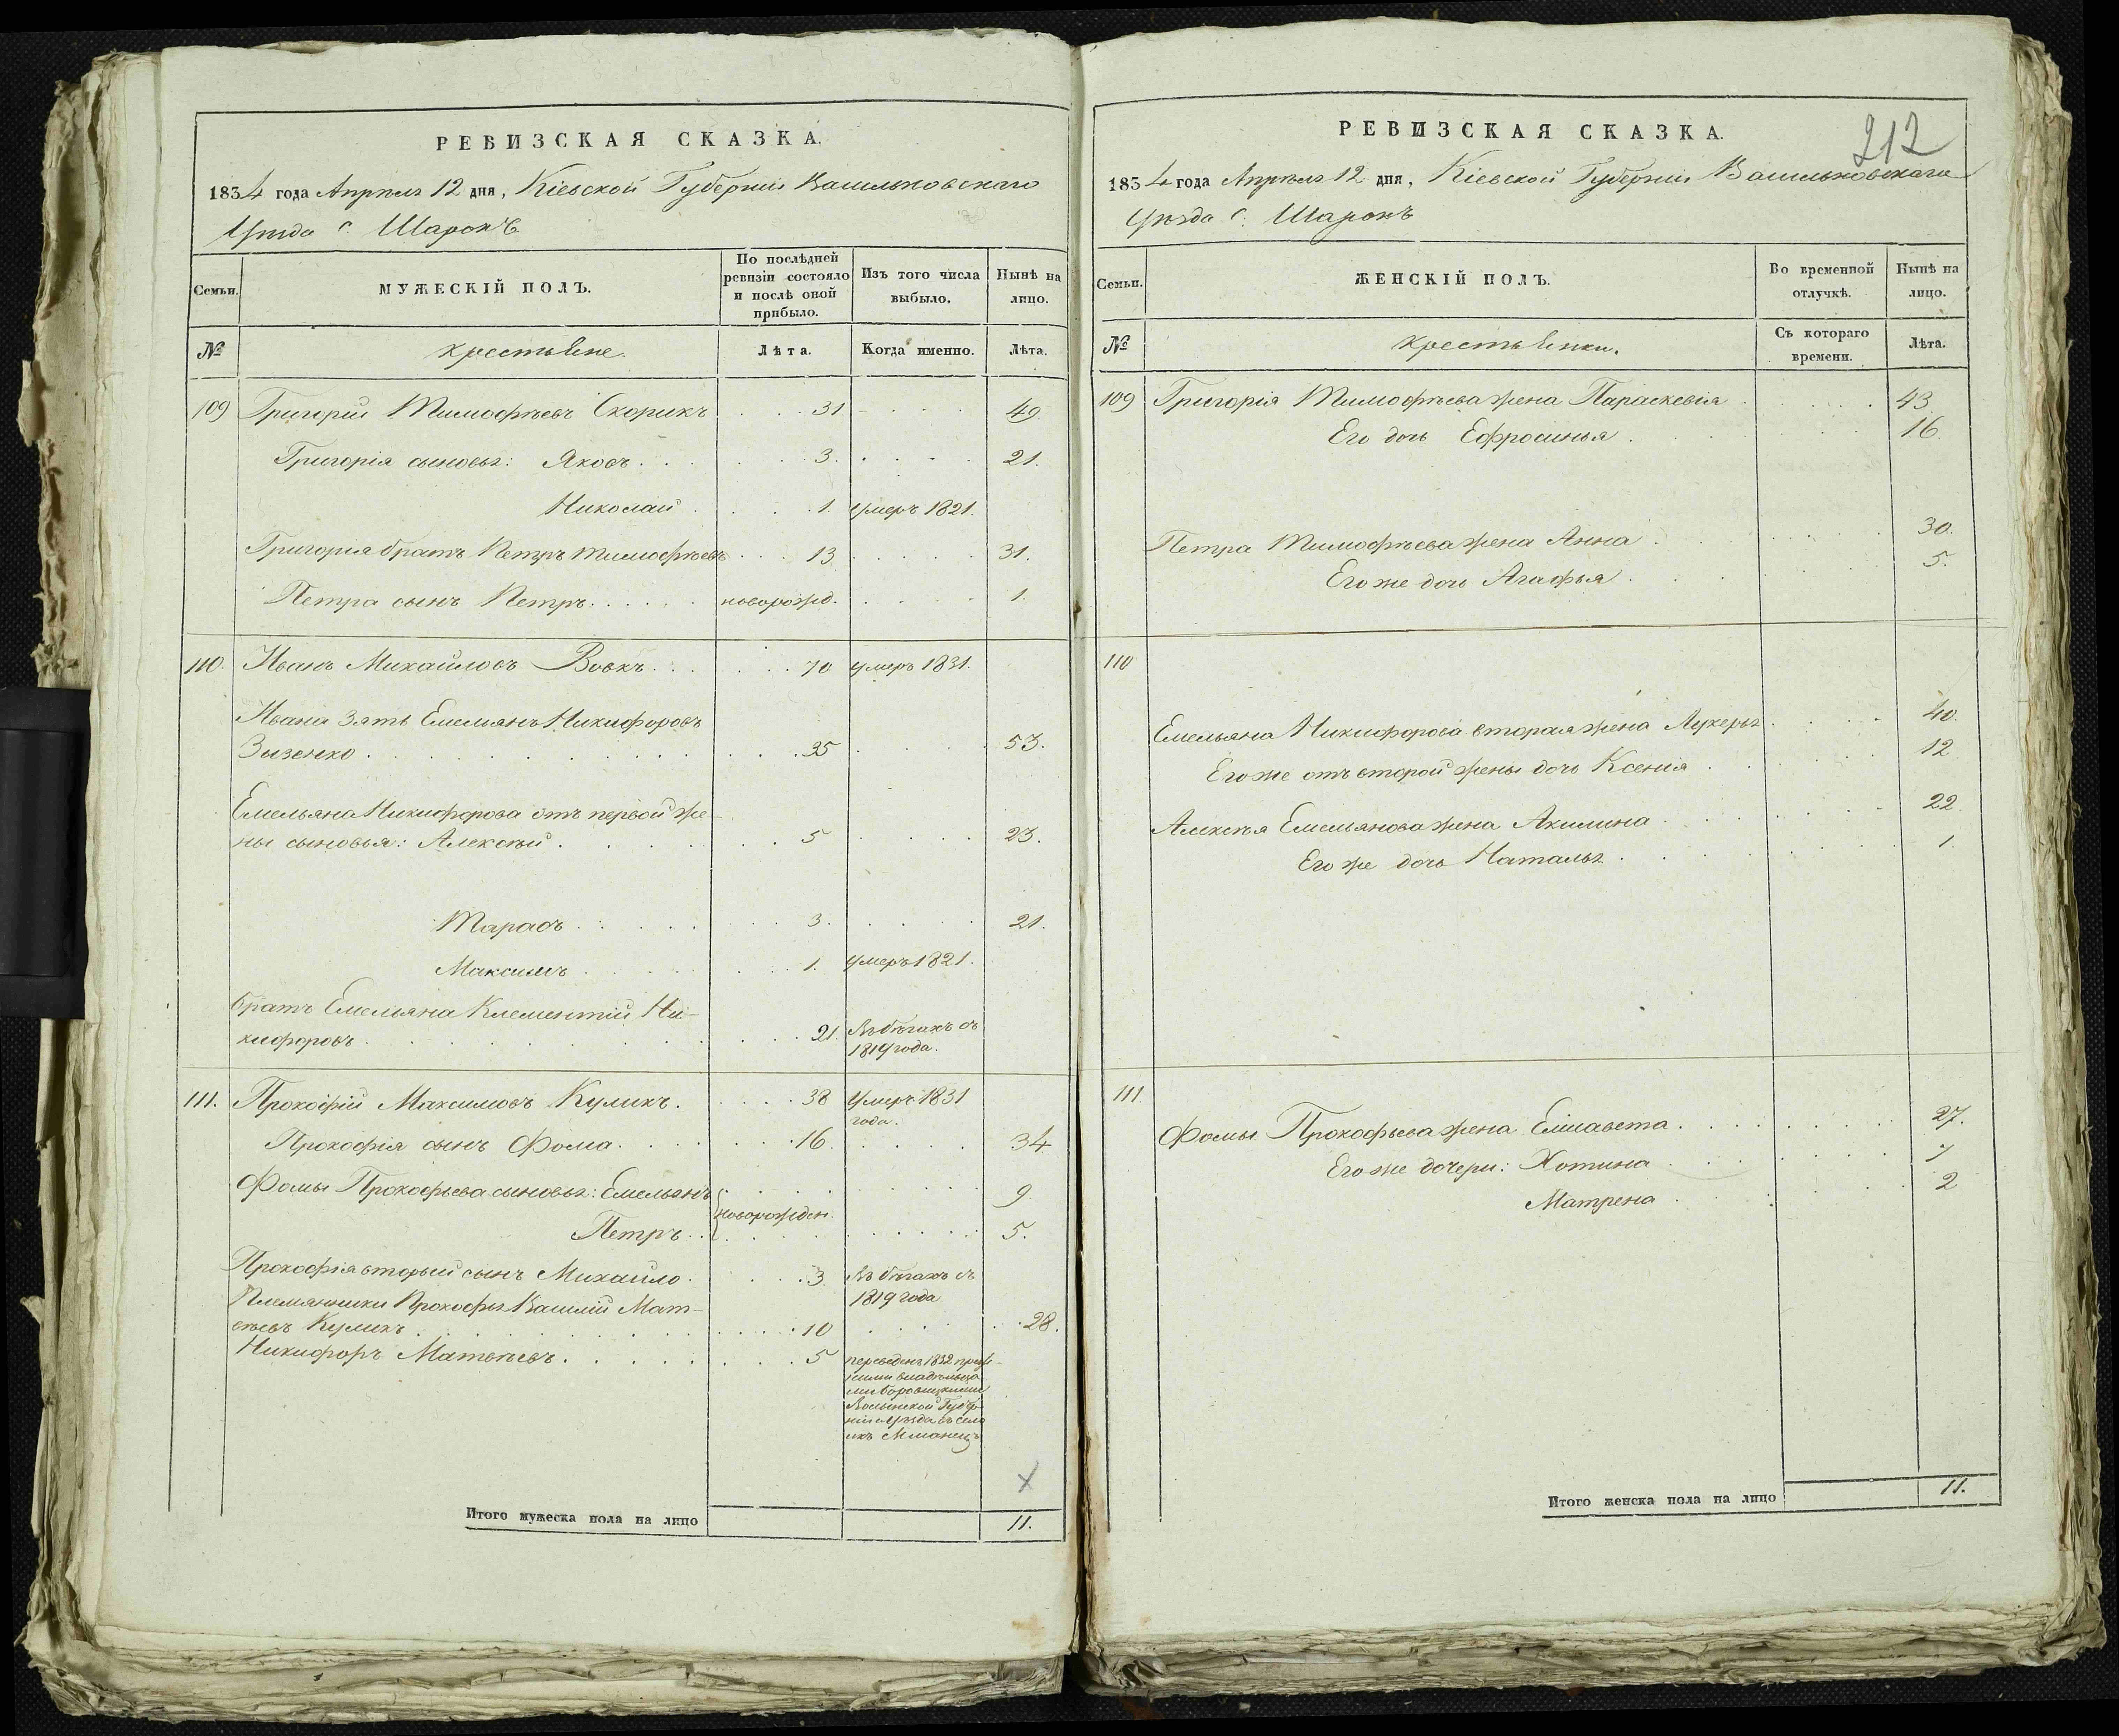 РЕВИЗСКАЯ СКАЗКА.
1834 года Апрѣля 12 дня, Кіевской Губерніи Васильковскаго
Уѣзда с. Шарокъ
Семьи.
МУЖЕСКІЙ ПОЛЪ.
По послѣдней
ревизіи состояло
и послѣ оной
прибыло.
Изъ того числа
выбыло.
Нынѣ на
лицо.
№ крестьяне. Лѣта. Когда именно. Лѣта.
109 Григорій Тимофѣевъ Скорикъ 31 49
Григорія сыновья: Яковъ 3. 21.
Николай 1. умеръ 1821.
Григорія братъ Петръ Тимофѣевъ 13 31.
Петра сынъ Петръ новорожд. 1.
110. Иванъ Михайловъ Вовкъ 70 умеръ 1831.
Ивана зять Емельянъ Никифоровъ
Зызенко 35 53.
Емельяна Никифорова отъ первой же-
ны сыновья: Алексѣй 5 23.
Тарасъ 3. 21.
Максимъ 1. умеръ 1821.
братъ Емельяна Клементій Ни-
кифоровъ 21. Въ бѣгахъ съ
1819 года.
111. Прокофій Максимовъ Куликъ. 38 умеръ 1831
года.
Прокофія сынъ Фома 16. 34
Фомы Прокофьева сыновья: Емельянъ 9
новорожден.
Петръ 5.
Прокофія вторый сынъ Михайло. 3 Въ бѣгахъ съ
1819 года
Племянники Прокофья Василій Мат-
вѣевъ Куликъ 10 28.
Никифоръ Матвѣевъ 5 переведенъ 1832 преж-
ними владѣльца
ми
Волынской Губер
ніи уѣзда въ село
X
Итого мужеска пола на лицо 11.
РЕВИЗСКАЯ СКАЗКА.
212
1834 года Апрѣля 12 дня, Кіевской Губерніи Васильковскаго
Уѣзда с. Шарокъ
Семьи.
ЖЕНСКІЙ ПОЛЪ.
Во временной
отлучкѣ.
Нынѣ на
лицо.
№ крестьянки.
Съ котораго
времени.
Лѣта.
109 Григорія Тимофѣева жена Параскевія 43.
Его дочь Ефросинья 16.
Петра Тимофѣева жена Анна 30.
Его же дочь Агафья 5.
110
Емельяна Никифорова вторая жена Лукерья 40.
Его же отъ второй жены дочь Ксенія 12
Алексѣя Емельянова жена Акилина 22.
Его же дочь Наталья 1.
111
Фомы Прокофьева жена Елисавета 27.
Его же дочери: Хотина 7
Матрена 2
Итого женска пола на лицо 11.